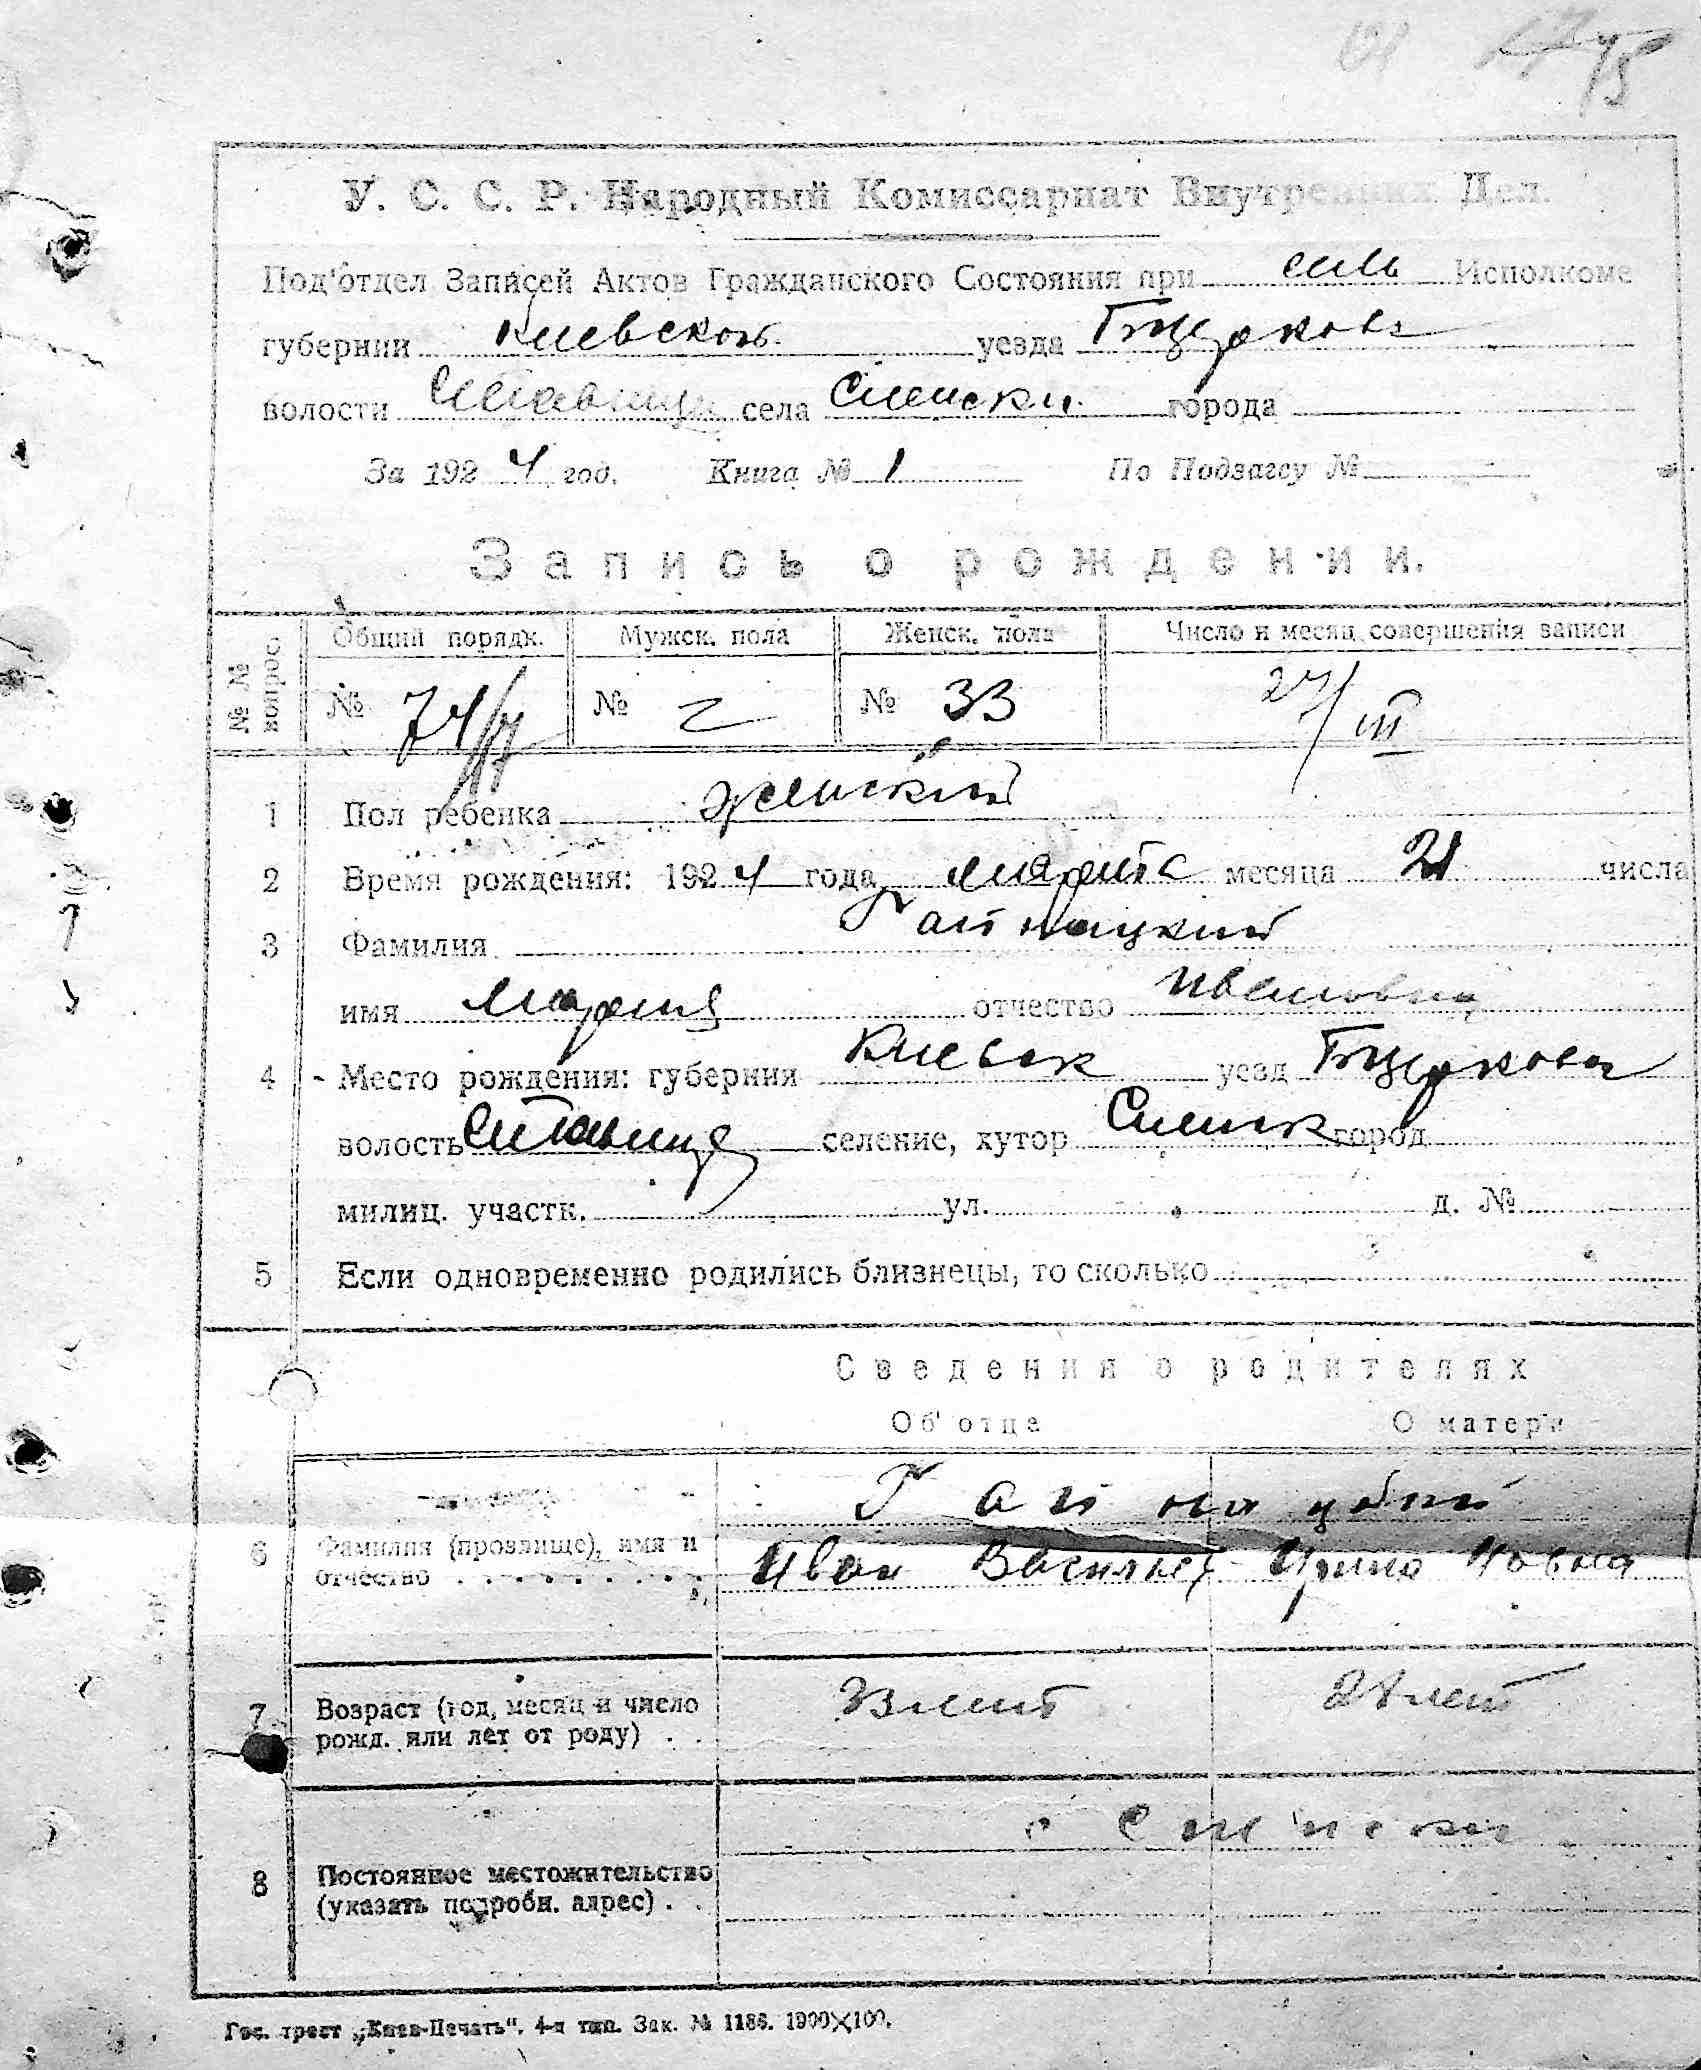 У. С. С. Р. Народный Комиссариат Внутренних Дел.
Под'отдел Записей Актов Гражданского Состояния при сель Исполкоме
губернии Киевской уезда Бцерковс
волости Ставище села Сненски города
За 1924 год. Книга № 1 По Подзагсу №
Запись о рождении.
№ № вопрос. Общий порядк. Мужск. пола Женск. пола Число и месяц совершения записи
№ 74 № № 33 27/III
1 Пол ребенка женский
2 Время рождения: 1924 года марта месяца 21 числа
3 Фамилия Гайнацкий
имя Мария отчество Ивановна
4 Место рождения: губерния Киевск уезд Бцерковс
волость Ставище селение, хутор город
милиц. участк. ул. д. №
5 Если одновременно родились близнецы, то сколько
Сведения о родителях
Об' отца О матери
6 Фамилия (прозвище), имя и
отчество Иван Василье Ирина
7 Возраст (год, месяц и число 28 лет
рожд. или лет от роду)
8 Постоянное местожительство
(указать подробн. адрес)
Гос. трест „Киев-Печать". 4-я тип. Зак. № 1186. 1900×100.